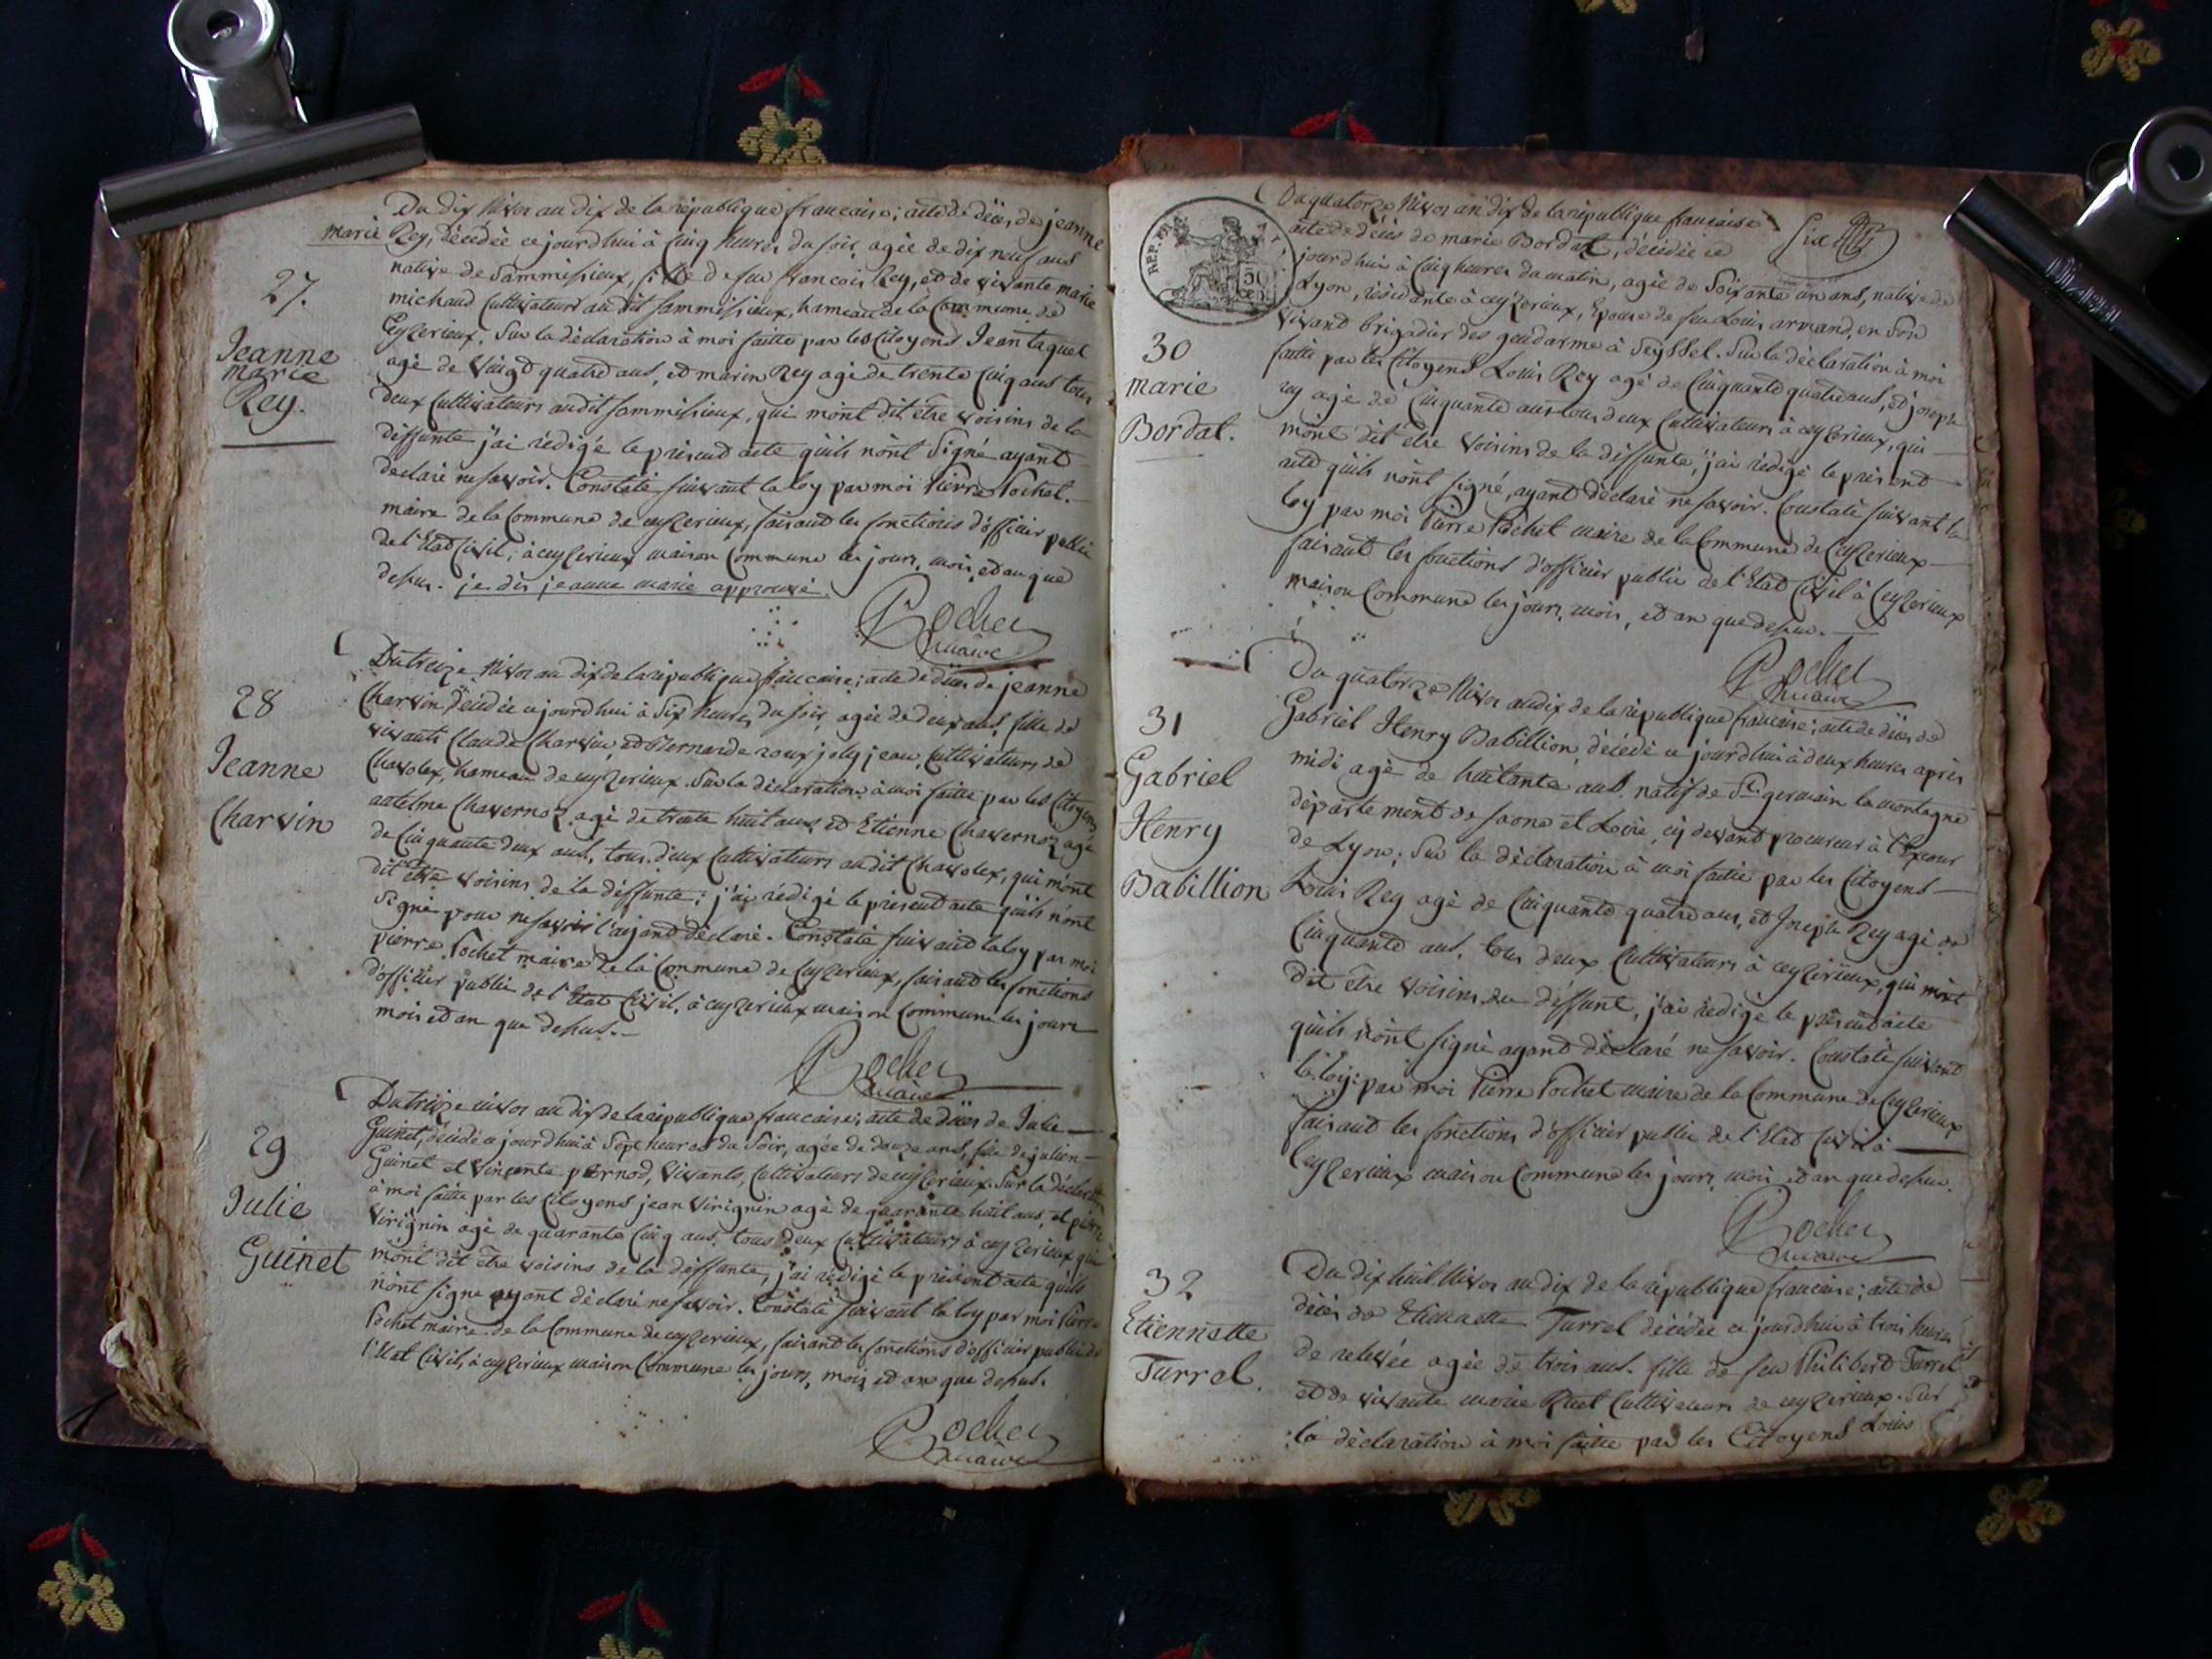 Du dix Nivos an dix de la république francaise; acte de décès de jeanne
marie Rey, décédée ce jourdhui à Cinq heures du soir, agée de dix neuf ans
native de Sammisieux, fille de feu francois Rey, et de vivante marie
michaud Cultivateurs au dit Sammisieux, hameau de la Commune de
Ceyzerieux. Sur la déclaration à moi faitte par les Citoyens Jean taquet
agé de Vingt quatre ans, et marin Rey agé de trente Cinq ans tous
deux Cultivateurs audit Sammisieux, qui mont dit être voisins de la
deffunte j'ai rédigé le présent acte quils nont Signé ayant
declaré ne savoir. Constaté suivant la loy par moi Pierre Pochet
maire de la Commune de ceyzerieux, faisant les fonctions d'officier public
de l'Etat Civil; à ceyzerieux maison Commune les jours, mois, et an que
dessus. je dis jeanne marie approuvé.
27.
Jeanne
marie
Rey.
Pochet
maire
Du treize Nivos an dix de la république francaise; acte de décès de jeanne
Charvin, décédée ce jourdhui à Six heures du soir, agée de deux ans, fille de
vivants Claude Charvin, et Bernarde roux joly jean, Cultivateurs de
Chavolex, hameau de ceyzerieux. Sur la déclaration à moi faitte par les Citoyens
antelme Chavernoz agé de trente huit ans et Etienne Chavernoz agé
de Cinquante deux ans, tous deux Cultivateurs audit Chavolex, qui m'ont
dit être voisins de la deffunte; j'ai rédigé le présent acte quils n'ont
Signé pour ne savoir l'ayant déclaré. Constaté suivant la loy par moi
pierre Pochet maire de la Commune de Ceyzerieux, faisant les fonctions
d'officier public de l'Etat Civil, à ceyzerieux maison Commune les jours
mois et an que dessus.
28
Jeanne
Charvin
Pochet
maire
Du treize nivos an dix de la république francaise; acte de décès de Julie
Guinet, décédé ce jourdhui à Sept heures du Soir, agée de douze ans, fille de julien
Guinet et Vincente pernod, vivants, Cultivateurs de ceyzerieux. Sur la déclaration
à moi faitte par les Citoyens jean Virignin agé de quarante huit ans, et pierre
Virignin agé de quarante Cinq ans, tous deux Cultivateurs à ceyzerieux qui
mont dit être voisins de la deffunte, j'ai rédigé le présent acte quils
n'ont signé ayant déclaré ne savoir. Constaté Suivant la loy par moi Pierre
Pochet maire de la Commune de ceyzerieux, faisant les fonctions d'officier public de
l'Etat Civil, à ceyzerieux maison Commune les jours, mois et an que dessus.
29
Julie
Guinet
Pochet
maire
REP. FRA.
50
cen.
Six
Du quatorze Nivos an dix de la république francaise
acte de décès de marie Bordat, décédée ce
jourdhui à Cinq heures du matin, agée de Soixante un ans, native de
Lyon, résidante à ceyzerieux, Epouse de feu Louis armand, en Son
Vivant brigadier des gendarme à Seyssel. Sur la déclaration à moi
faitte par les Citoyens Louis Rey agé de Cinquante quatre ans, et joseph
rey agé de Cinquante ans tous deux Cultivateurs à ceyzerieux, qui
mont dit être Voisins de la deffunte, j'ai rédigé le présent
acte quils nont signé, ayant déclaré ne savoir. Constaté suivant la
loy par moi Pierre Pochet maire de la Commune de Ceyzerieux
faisant les fonctions d'officier public de l'Etat Civil à Ceyzerieux
maison Commune les jours, mois, et an que dessus.
30
marie
Bordat.
Pochet
maire
Du quatorze Nivos an dix de la république francaise; acte de décès de
Gabriel Henry Babillion, décédé ce jourdhui à deux heures après
midi agé de huitante ans, natif de St. germain la montagne
département de saone et Loire, cy devant procureur à l'Excour
de Lyon; Sur la déclaration à moi faitte par les Citoyens
Louis Rey agé de Cinquante quatre ans, et Joseph Rey agé de
Cinquante ans, tous deux Cultivateurs à ceyzerieux, qui mont
dit être Voisins du deffunt, j'ai rédigé le présent acte
quils n'ont signé ayant déclaré ne savoir. Constaté suivant
la loy par moi Pierre Pochet maire de la Commune de Ceyzerieux
faisant les fonctions d'officier public de l'Etat Civil à
Ceyzerieux maison Commune les jours, mois et an que dessus.
31
Gabriel
Henry
Babillion
Pochet
maire
Du dix huit Nivos an dix de la république francaise; acte de
décès de Etiennette Turrel décédée ce jourdhui à trois heures
de relevée agée de trois ans. fille de feu Philibert Turrel
et de vivante marie Ruet Cultivateurs de ceyzerieux. Sur
la déclaration à moi faitte par les Citoyens Louis
32
Etiennette
Turrel.